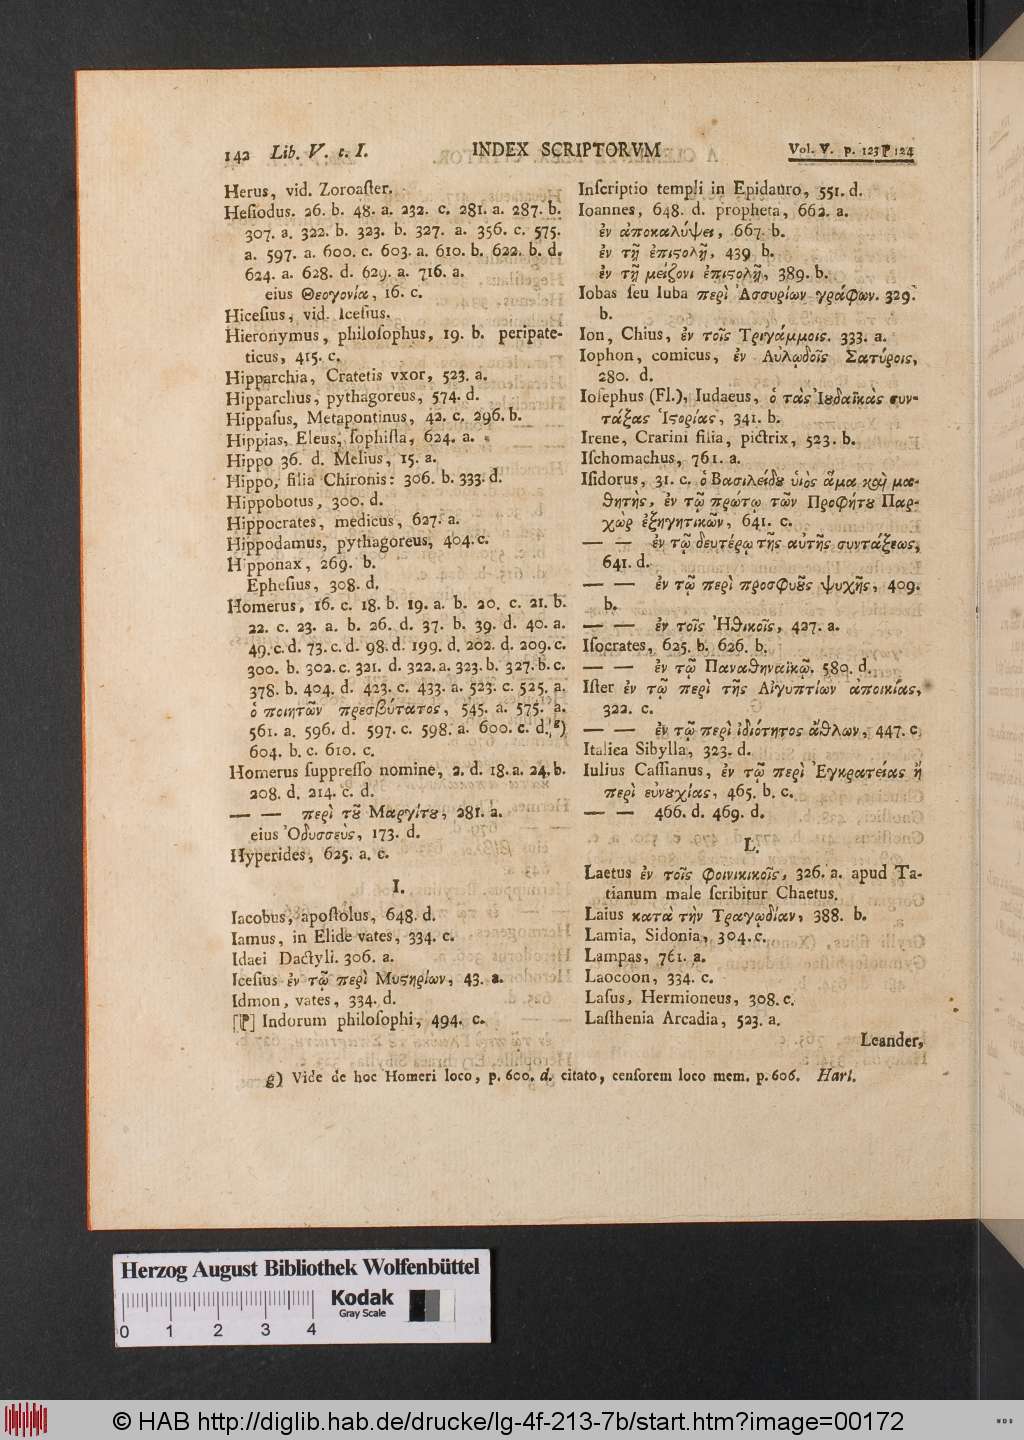 142 Lib. V. c. I. INDEX SCRIPTORVM Vol. V. p. 123 ⁋ 124
Herus, vid. Zoroaſter.
Heſiodus. 26. b. 48. a. 232. c. 281. a. 287. b.
307. a. 322. b. 323. b. 327. a. 356. c. 575.
a. 597. a. 600. c. 603. a. 610. b. 622. b. d.
624. a. 628. d. 629. a. 716. a.
eius Θεογονία, 16. c.
Hiceſius, vid. Iceſius.
Hieronymus, philoſophus, 19. b. peripate-
ticus, 415. c.
Hipparchia, Cratetis vxor, 523. a.
Hipparchus, pythagoreus, 574. d.
Hippaſus, Metapontinus, 42. c. 296. b.
Hippias, Eleus, ſophiſta, 624. a.
Hippo 36. d. Melius, 15. a.
Hippo, filia Chironis: 306. b. 333. d.
Hippobotus, 300. d.
Hippocrates, medicus, 627. a.
Hippodamus, pythagoreus, 404. c.
Hipponax, 269. b.
Epheſius, 308. d.
Homerus, 16. c. 18. b. 19. a. b. 20. c. 21. b.
22. c. 23. a. b. 26. d. 37. b. 39. d. 40. a.
49. c. d. 73. c. d. 98. d. 199. d. 202. d. 209. c.
300. b. 302. c. 321. d. 322. a. 323. b. 327. b. c.
378. b. 404. d. 423. c. 433. a. 523. c. 525. a.
ὁ ποιητῶν πρεσβύτατος, 545. a. 575. a.
561. a. 596. d. 597. c. 598. a. 600. c. d. g)
604. b. c. 610. c.
Homerus ſuppreſſo nomine, 2. d. 18. a. 24. b.
208. d. 214. c. d.
— — περὶ τȣ͂ Μαργίτȣ, 281. a.
eius Ὀδυσσεὺς, 173. d.
Hyperides, 625. a. c.
I.
Iacobus, apoſtolus, 648. d.
Iamus, in Elide vates, 334. c.
Idaei Dactyli. 306. a.
Iceſius ἐν τῷ περὶ Μυϛηρίων, 43. a.
Idmon, vates, 334. d.
[⁋] Indorum philoſophi, 494. c.
Inſcriptio templi in Epidauro, 551. d.
Ioannes, 648. d. propheta, 662. a.
ἐν ἀποκαλύψει, 667. b.
ἐν τῇ ἐπιϛολῇ, 439 b.
ἐν τῇ μείζονι ἐπιϛολῇ, 389. b.
Iobas ſeu Iuba περὶ Ἀσσυρίων γράφων. 329.
b.
Ion, Chius, ἐν τοῖς Τριγάμμοις. 333. a.
Iophon, comicus, ἐν Αὐλῳδοῖς Σατύροις,
280. d.
Ioſephus (Fl.), Iudaeus, ὁ τὰς Ἰȣδαϊκὰς συν-
τάξας Ἱϛορίας, 341. b.
Irene, Crarini filia, pictrix, 523. b.
Iſchomachus, 761. a.
Iſidorus, 31. c. ὁ Βασιλείδȣ ὑιὸς ἅμα καὶ μα-
θητὴς, ἐν τῷ πρώτῳ τῶν Προφήτȣ Παρ-
χὼρ ἐξηγητικῶν, 641. c.
— — ἐν τῷ δευτέρῳ τῆς αὐτῆς συντάξεως,
641. d.
— — ἐν τῷ περὶ προσφυȣ͂ς ψυχῆς, 409.
b.
— — ἐν τοῖς Ἠθικοῖς, 427. a.
Iſocrates, 625. b. 626. b.
— — ἐν τῷ Παναθηναϊκῷ. 580. d.
Iſter ἐν τῷ περὶ τῆς Αἰγυπτίων ἀποικίας,
322. c.
— — ἐν τῷ περὶ ἰδιότητος ἄθλων, 447. c
Italica Sibylla, 323. d.
Iulius Caſſianus, ἐν τῷ περὶ Ἐγκρατείας ἢ
περὶ εὐνȣχίας, 465. b. c.
— — 466. d. 469. d.
L.
Laetus ἐν τοῖς φοινικικοῖς, 326. a. apud Ta-
tianum male ſcribitur Chaetus.
Laius κατὰ τὴν Τραγῳδίαν, 388. b.
Lamia, Sidonia, 304. c.
Lampas, 761. a.
Laocoon, 334. c.
Laſus, Hermioneus, 308. c.
Laſthenia Arcadia, 523. a.
Leander,
g) Vide de hoc Homeri loco, p. 600. d. citato, cenſorem loco mem. p. 606. Harl.
Herzog August Bibliothek Wolfenbüttel
Kodak
Gray Scale
0 1 2 3 4
© HAB http://diglib.hab.de/drucke/lg-4f-213-7b/start.htm?image=00172